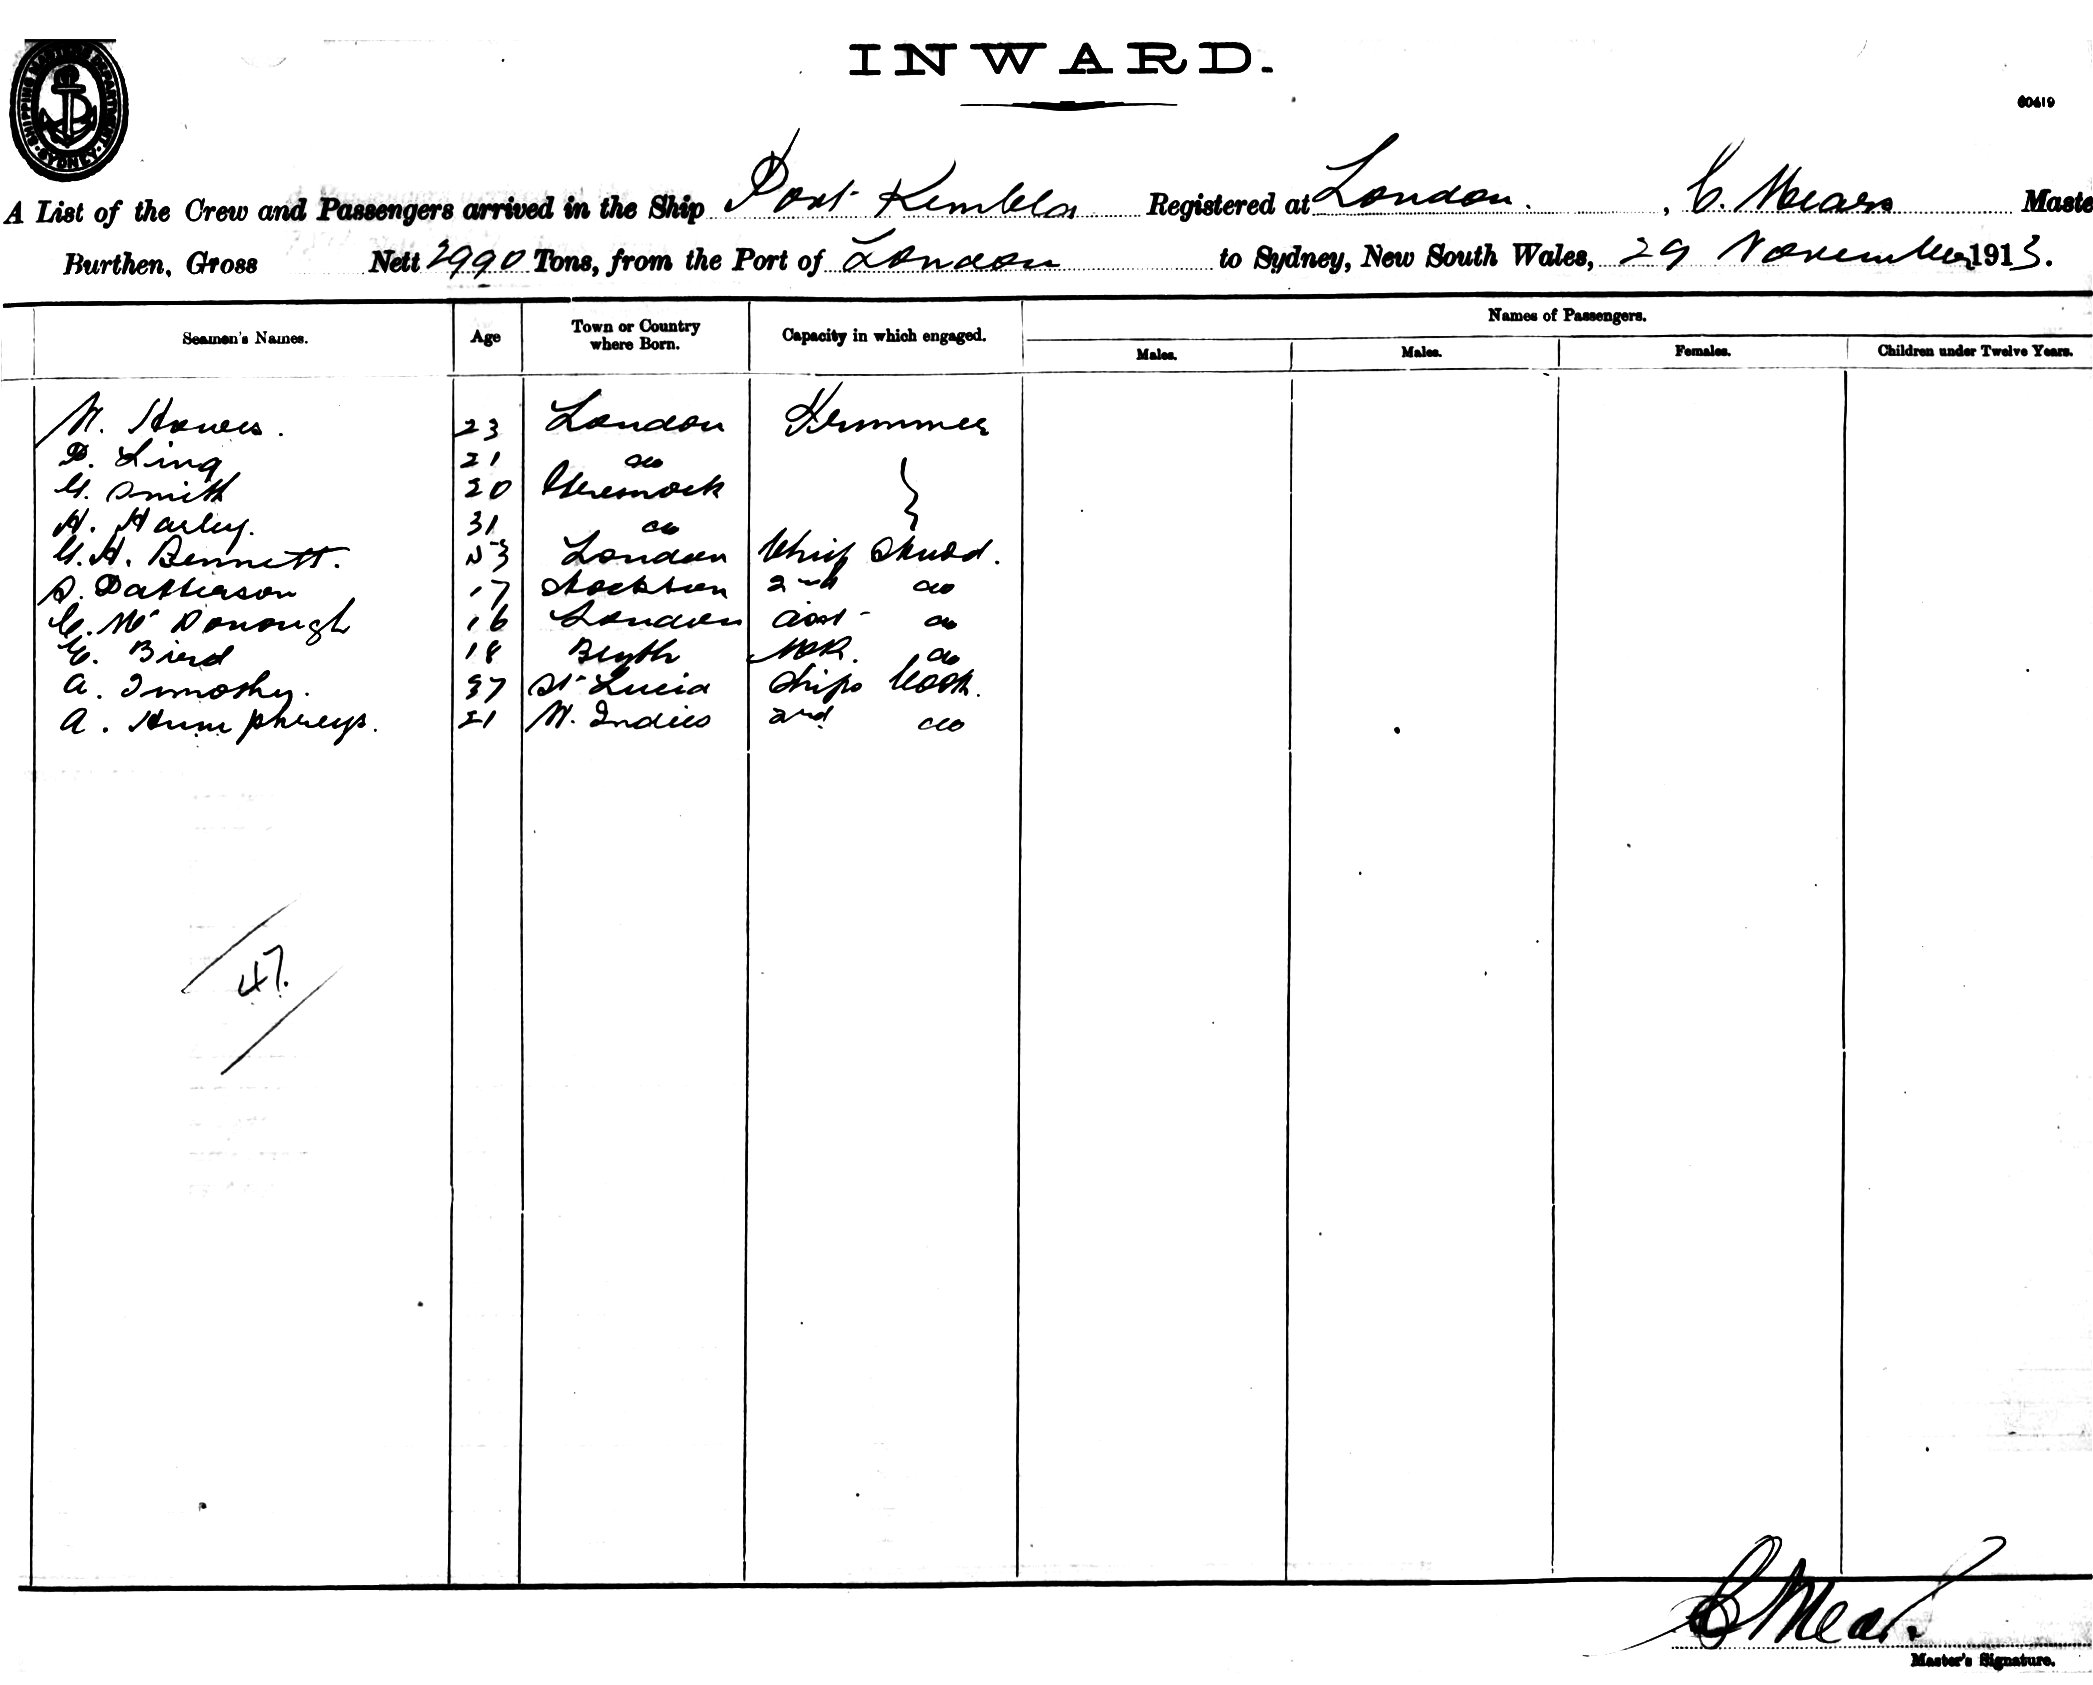 INWARD.
60419
SHIPPING MASTER'S DEPARTMENT SYDNEY
A List of the Crew and Passengers arrived in the Ship Port Kembla Registered at London. , C. Mears Maste
Burthen, Gross Nett 2990 Tons, from the Port of London to Sydney, New South Wales, 29 November 1913.
Seamen's Names. Age Town or Country where Born. Capacity in which engaged. Names of Passengers.
Males. Males. Females. Children under Twelve Years.
W. Howes. 23 London Trimmer
P. Ling 21 do
G. Smith 20 Greenock
H. Harley. 31 do
G. H. Bennett. 53 London Chief Stwd.
S. Patterson 17 Stockton 2nd do
C. Mc Donough 16 London asst do
G. Bird 18 Blyth MR. do
A. Timothy. 37 St Lucia Ships Cook.
A. Humphreys. 21 W. Indies 2nd do
47.
C Mears
Master's Signature.